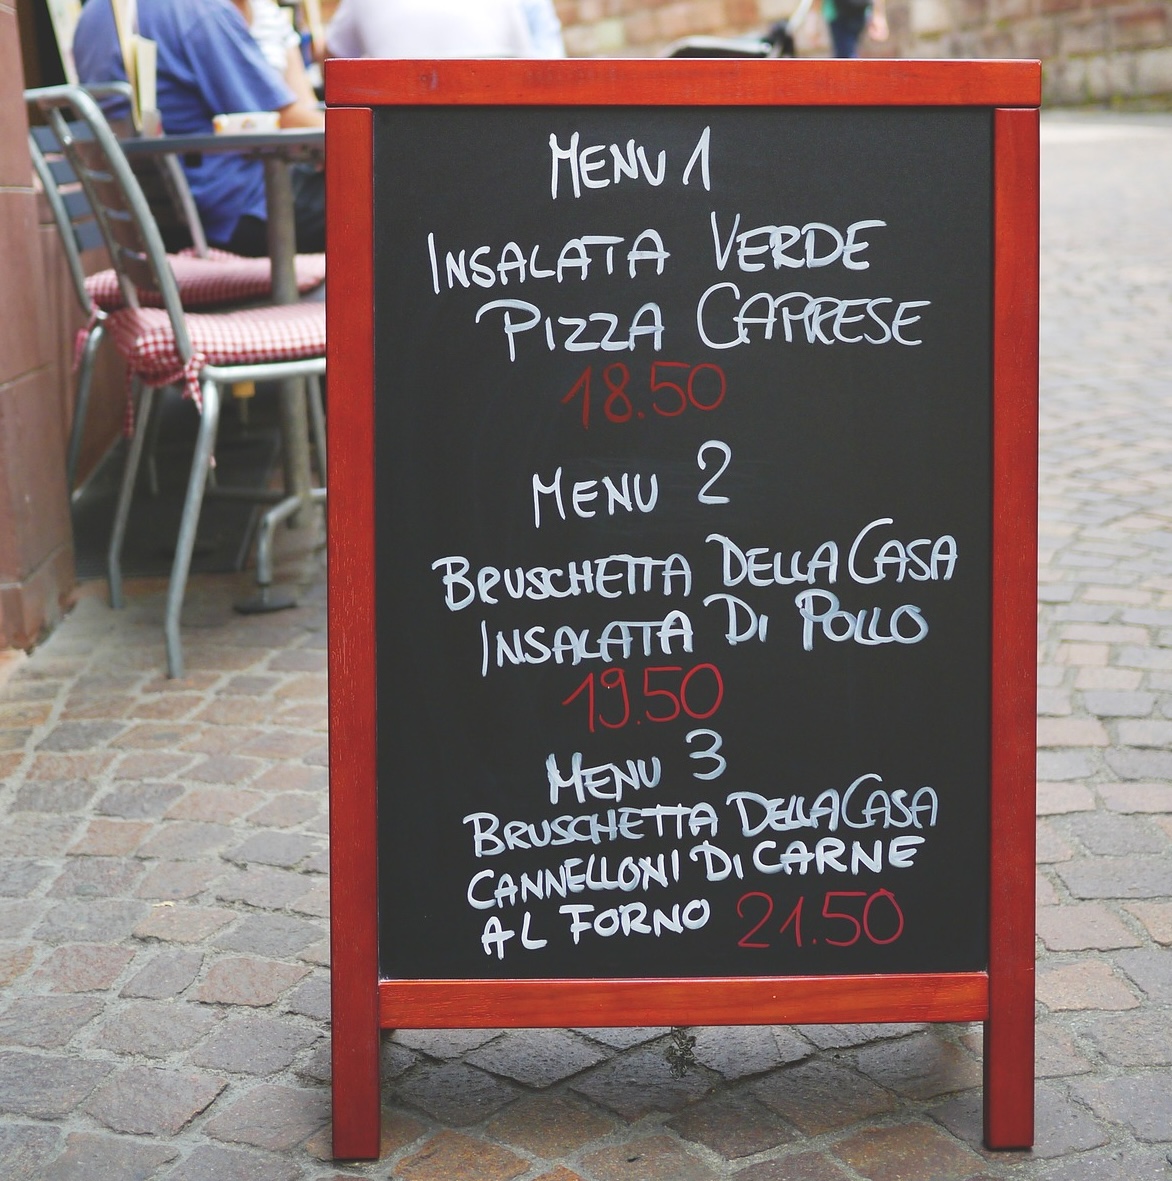 MENU 1
INSALATA VERDE
PIZZA CAPRESE
18.50
MENU 2
BRUSCHETTA DELLA CASA
INSALATA DI POLLO
19.50
MENU 3
BRUSCHETTA DELLA CASA
CANNELLONI DI CARNE
AL FORNO 21.50